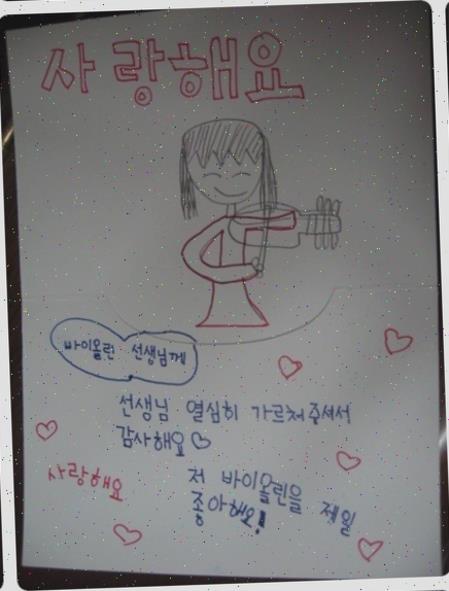 사랑해요
바이올린 선생님께
선생님 열심히 가르쳐주셔서
감사해요♡
사랑해요
저 바이올린을 제일
좋아해요!